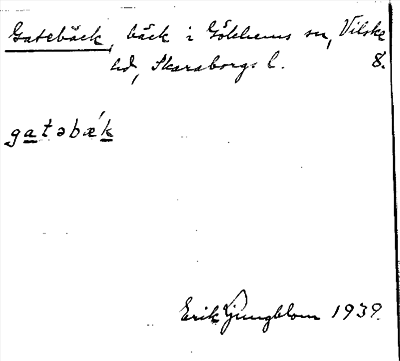 Gatebäck, bäck i Gökhems sn, Vilske
hd, Skaraborgs l. 8.
gatəbæ´k
Erik Ljungblom 1939.